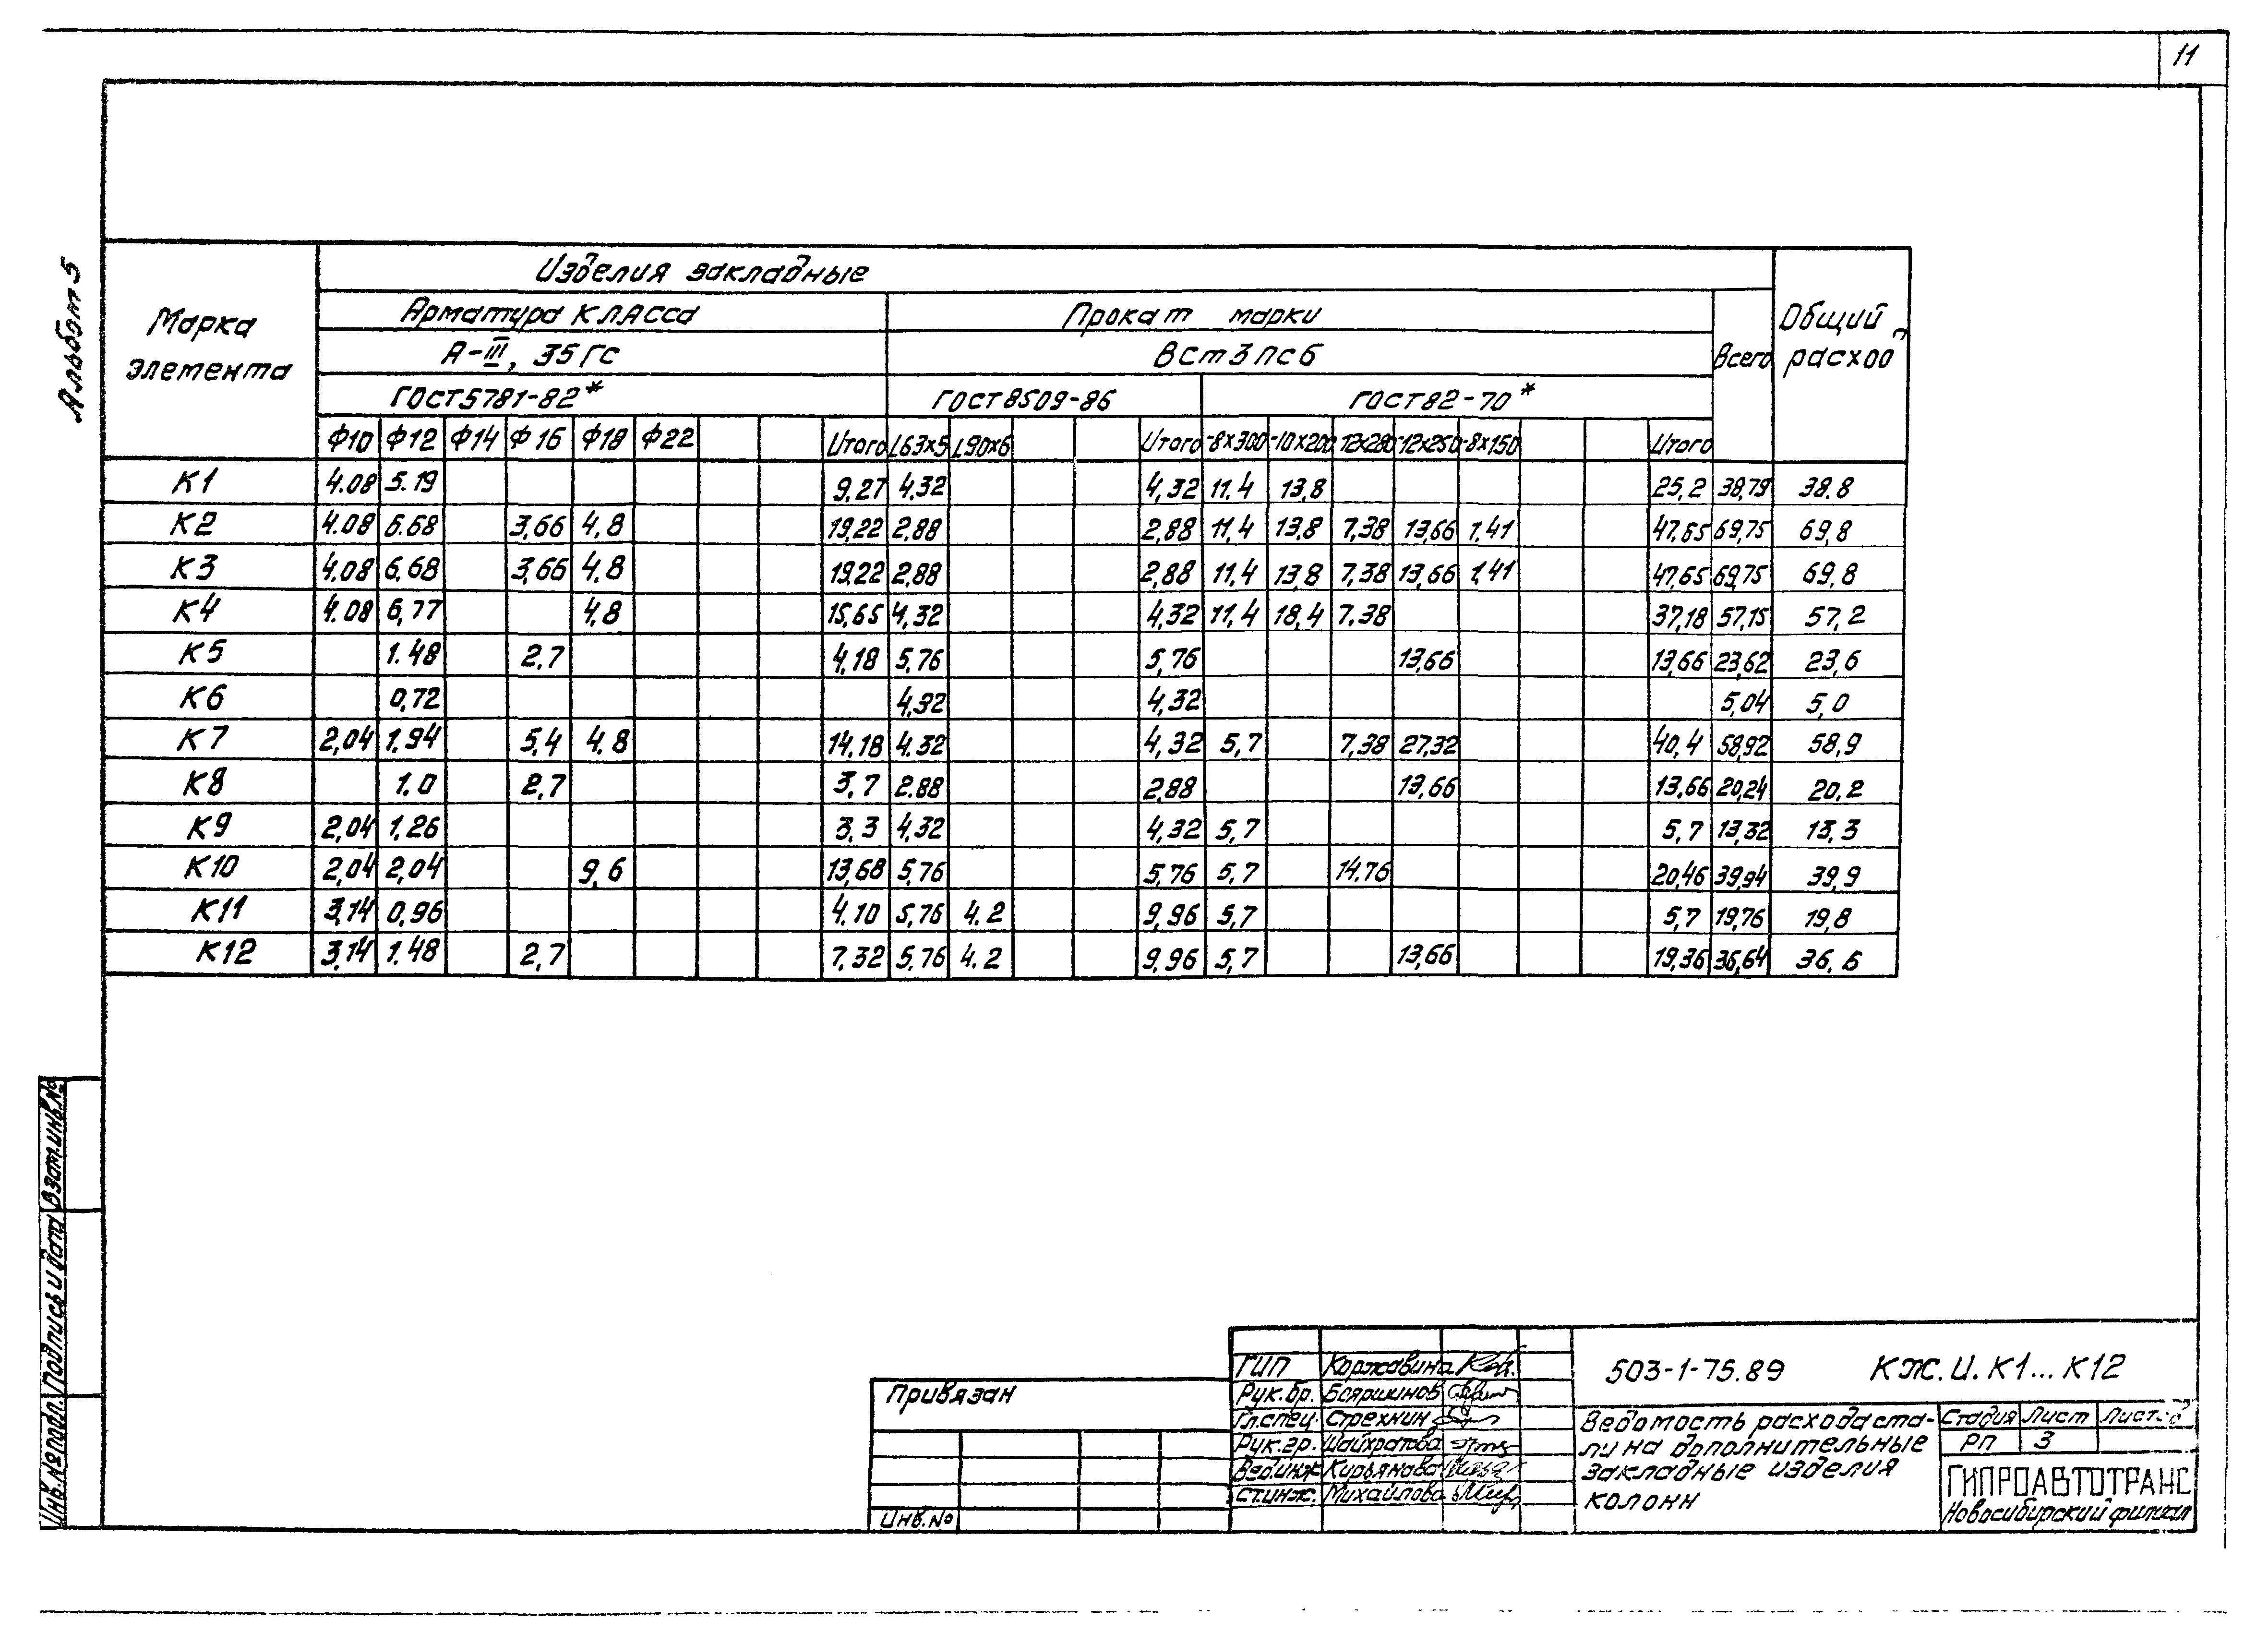 11
Альбом 5
Марка элемента
Изделия закладные
Арматура класса
Прокат марки
А-III, 35ГС
ВСт3пс6
Всего
Общий расход
ГОСТ5781-82*
ГОСТ8509-86
ГОСТ82-70*
Ф10 Ф12 Ф14 Ф16 Ф18 Ф22 Итого L63х5 L90х6 Итого -8х300 -10х200 -12х280 -12х250 -8х150 Итого
К1 4.08 5.19 9,27 4,32 4,32 11.4 13,8 25,2 38,79 38.8
К2 4.08 6.68 3,66 4,8 19,22 2,88 2,88 11,4 13,8 7,38 13,66 1,41 47,65 69,75 69,8
К3 4.08 6,68 3,66 4,8 19,22 2,88 2,88 11,4 13,8 7,38 13,66 1,41 47,65 69,75 69,8
К4 4.08 6,77 4,8 15,65 4,32 4,32 11,4 18,4 7.38 37,18 57,15 57,2
К5 1.48 2,7 4,18 5,76 5,76 13,66 13,66 23,62 23,6
К6 0,72 4,32 4,32 5,04 5,0
К7 2,04 1.94 5,4 4.8 14,18 4.32 4,32 5,7 7,38 27,32 40,4 58,92 58,9
К8 1.0 2,7 3,7 2.88 2,88 13,66 13,66 20,24 20,2
К9 2,04 1,26 3,3 4,32 4,32 5,7 5,7 13,32 13,3
К10 2,04 2,04 9,6 13,68 5,76 5,76 5,7 14,76 20,46 39,94 39,9
К11 3,14 0,96 4.10 5,76 4.2 9,96 5,7 5,7 19,76 19,8
К12 3,14 1.48 2,7 7,32 5,76 4.2 9,96 5,7 13,66 19,36 36,64 36,6
Взам.инв.№
Подпись и дата
Инв.№подл.
Привязан
Инв.№
ГИП Коржавина
Рук.бр. Бояркинов
Гл.спец. Стрехнин
Рук.гр. Шайхратова
Вед.инж Кирьянова
Ст.инж. Михайлова
503-1-75.89 КЖ.И.К1...К12
Ведомость расхода ста-
ли на дополнительные
закладные изделия
колонн
Стадия Лист Листов
РП 3
ГИПРОАВТОТРАНС
Новосибирский филиал